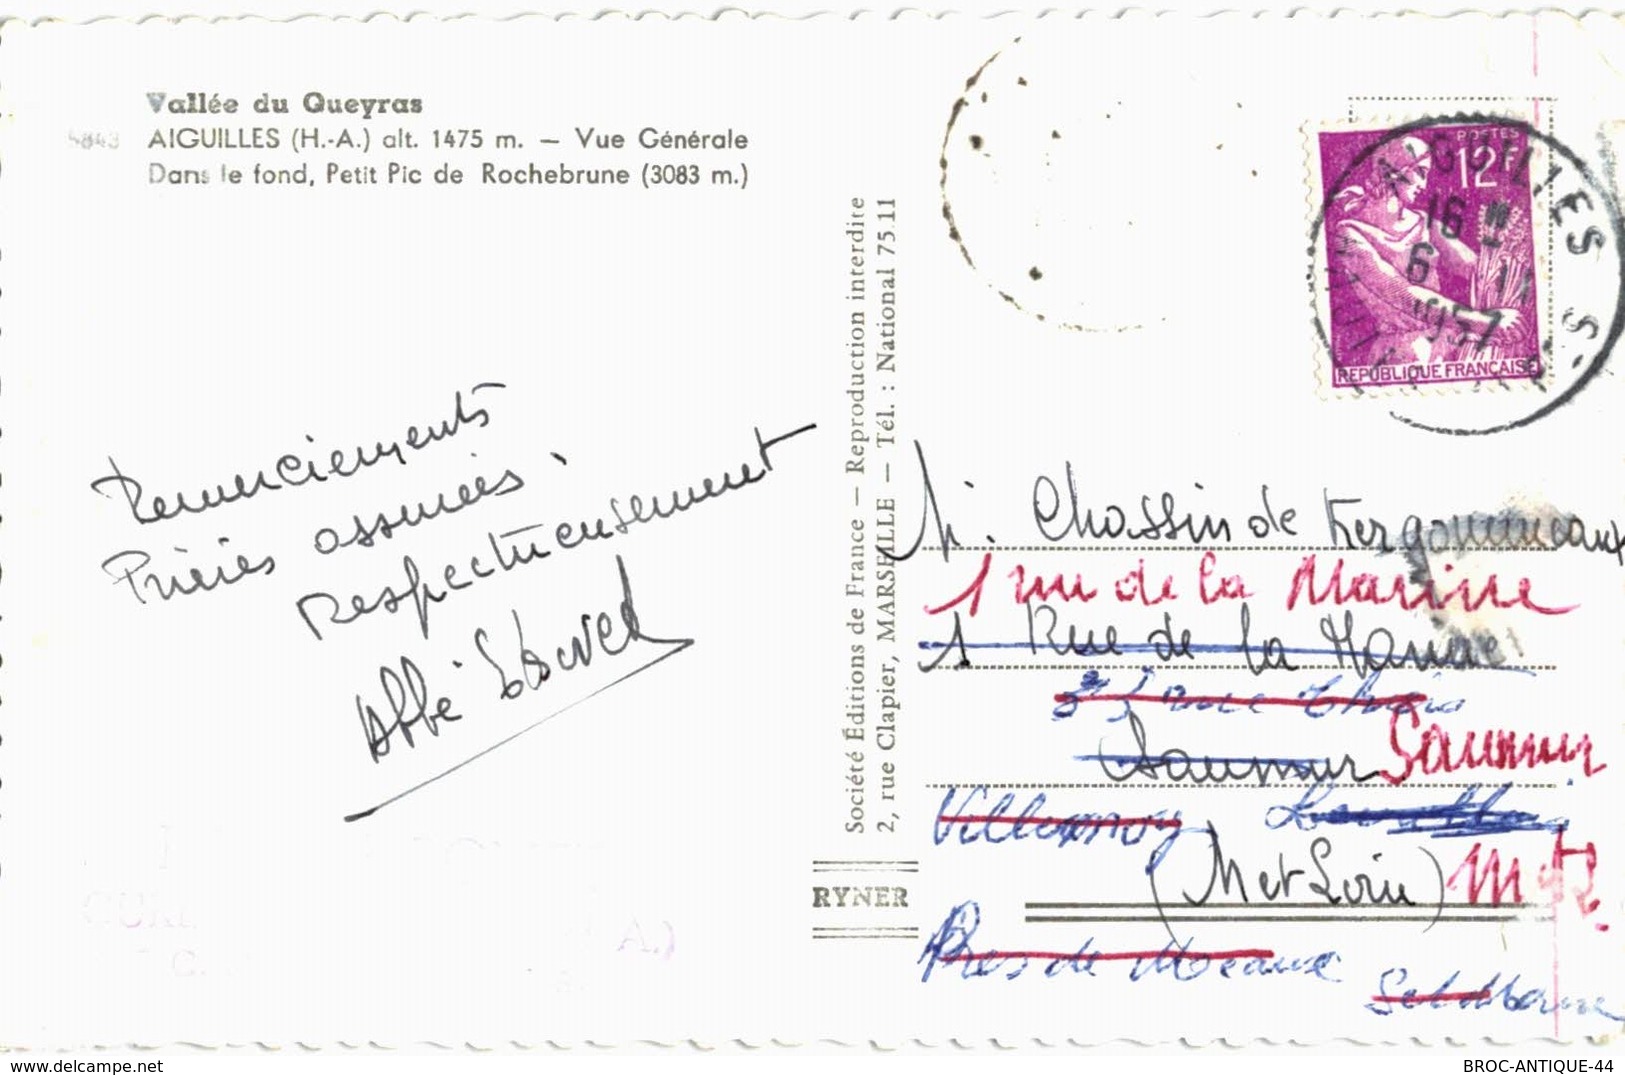 Vallée du Queyras
4843 AIGUILLES (H.-A.) alt. 1475 m. — Vue Générale
Dans le fond, Petit Pic de Rochebrune (3083 m.)
Remerciements
Prières assurées.
Respectueusement
Abbé
Société Éditions de France — Reproduction interdite
2, rue Clapier, MARSEILLE — Tél. : National 75.11
RYNER
POSTES
12F
REPUBLIQUE FRANÇAISE
AIGUILLES
16 H
6 - 11
1957
M. Chassin de Kergommeaux
1 rue de la Marine
1 Rue de la
rue
Saumur Saumur
Villenoy
(M et Loire) M & L.
Près de Meaux
S et Marne
BROC-ANTIQUE-44